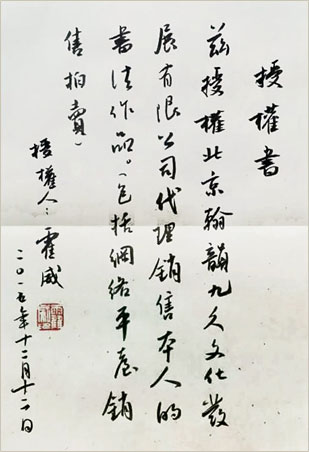 授權書
兹授權北京翰韻九久文化發
展有限公司代理銷售本人的
書法作品。（包括網絡平臺銷
售拍賣）
授權人：霍威
二〇一五年十二月十二日